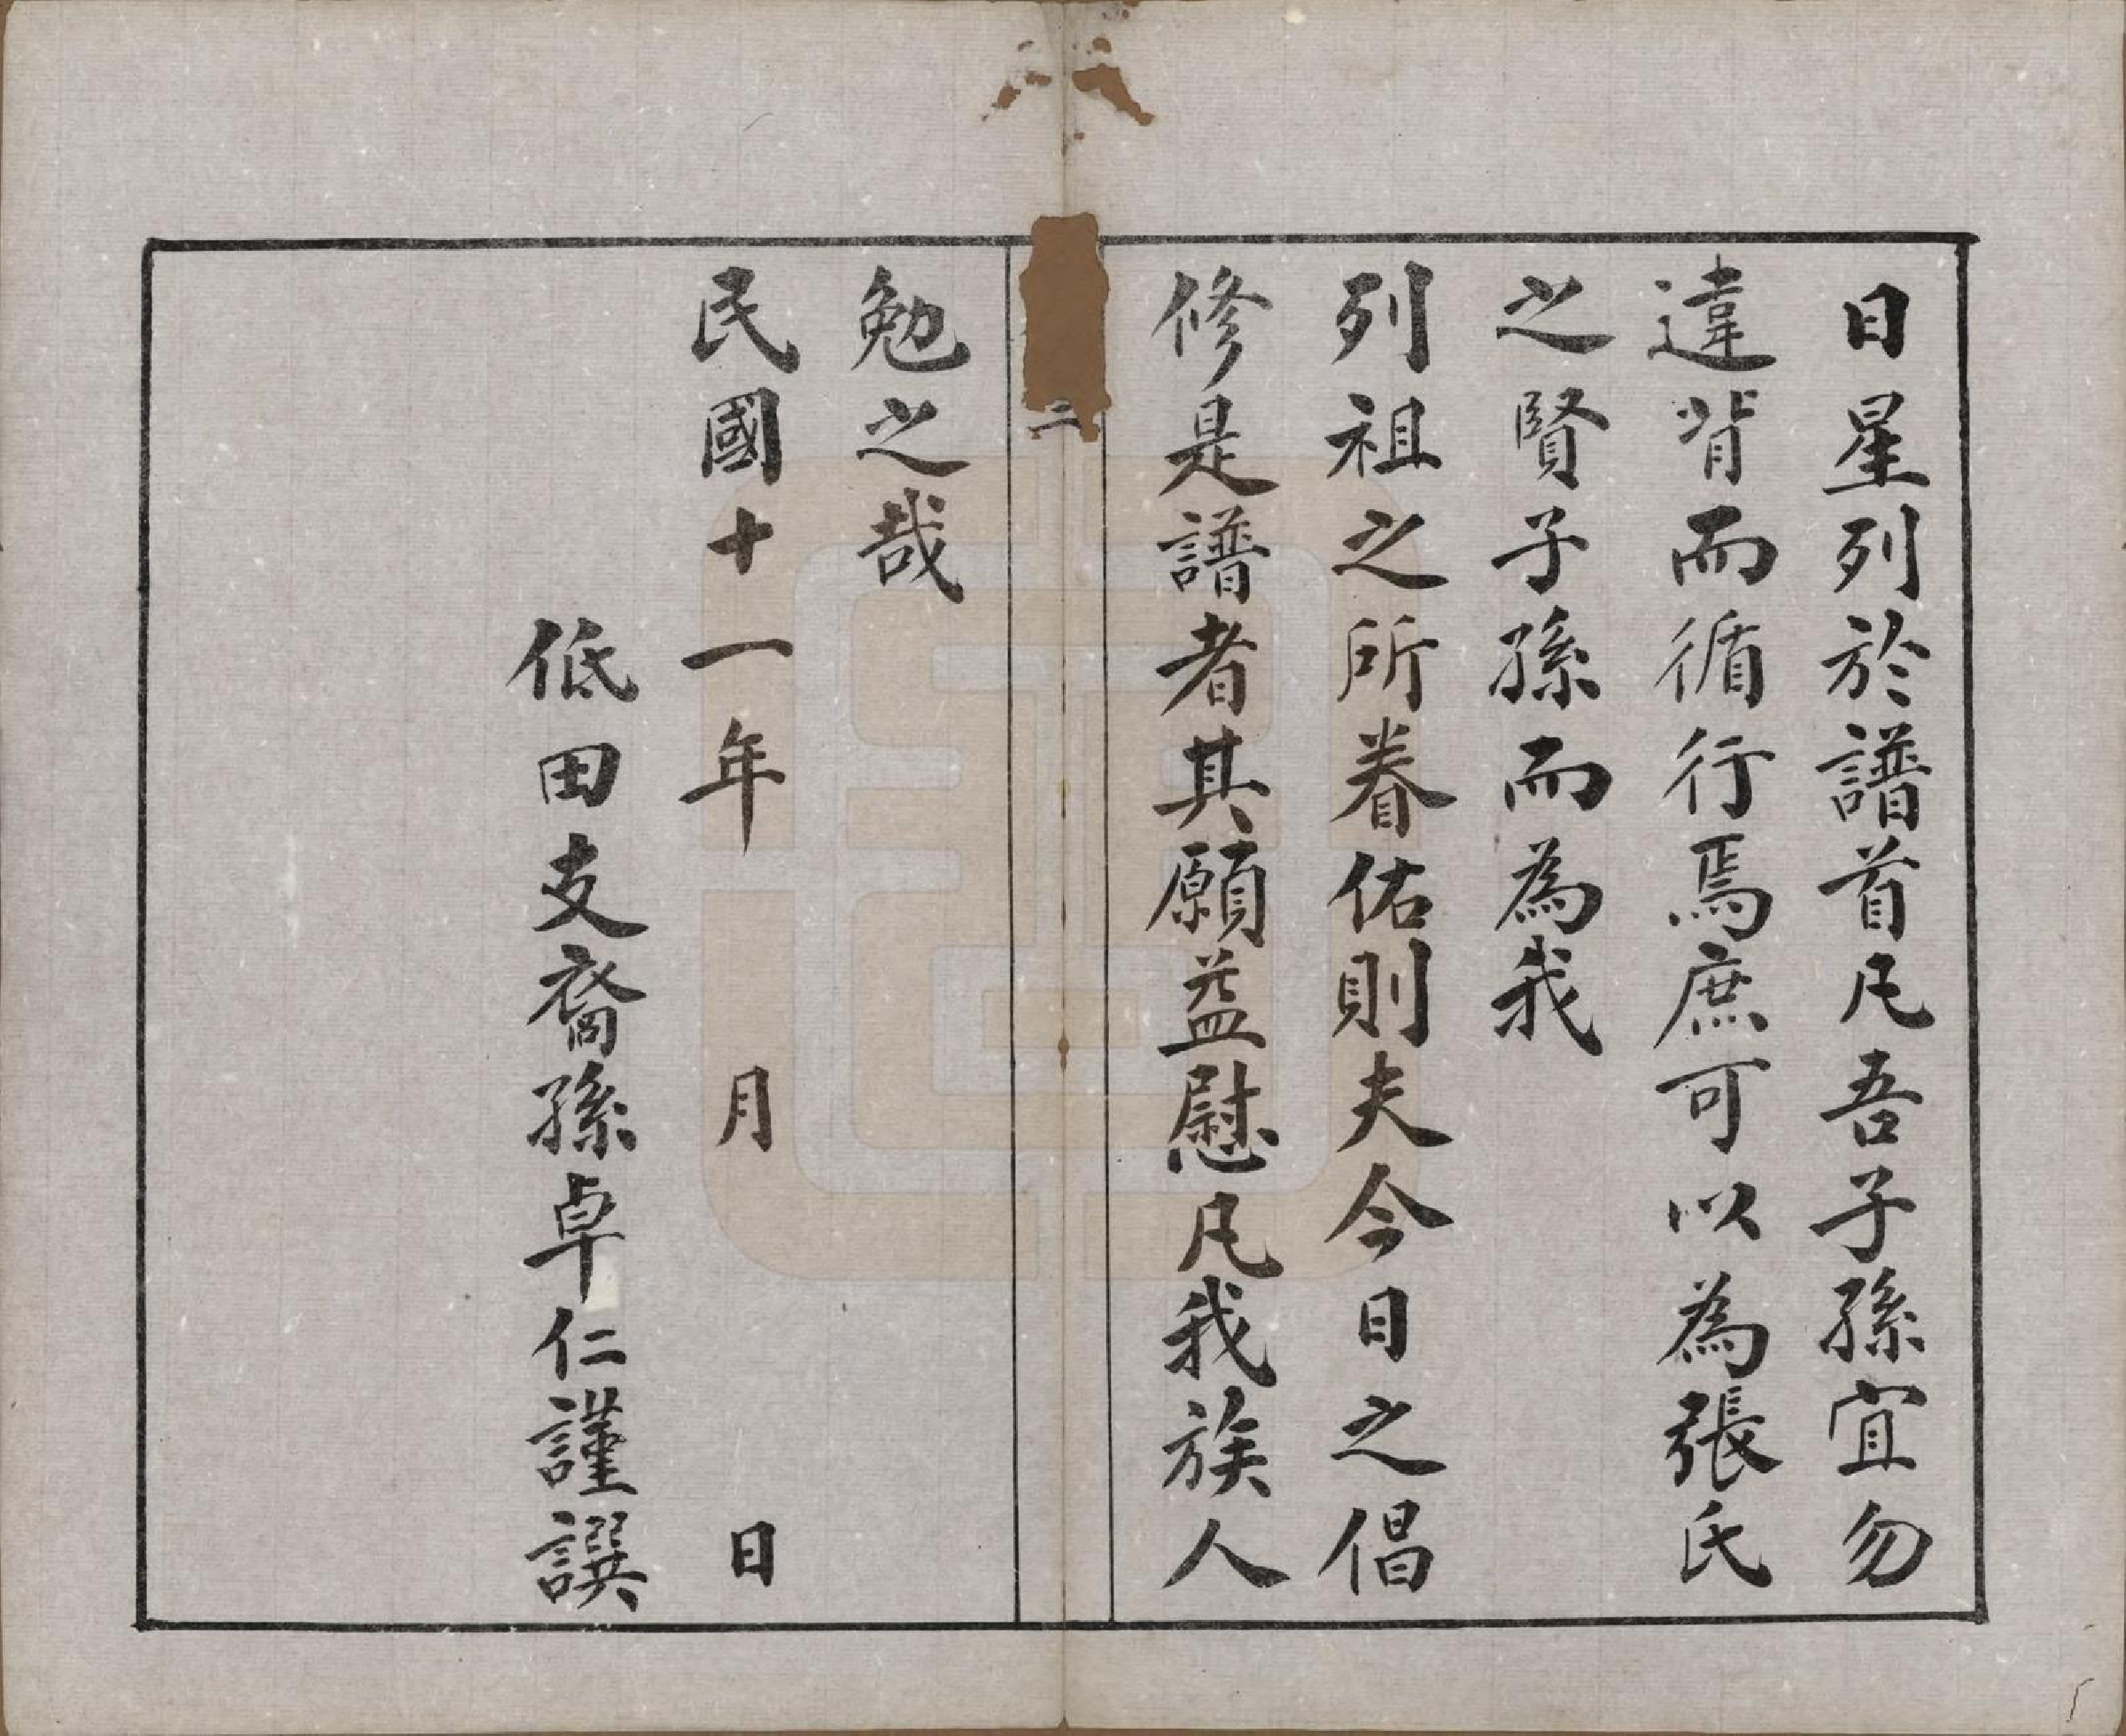 日星列於譜首凡吾子孫宜勿
違背而循行焉庶可以為張氏
之賢子孫而為我
列祖之所眷佑則夫今日之倡
修是譜者其願益慰凡我族人
二
勉之哉
民國十一年 月 日
低田支裔孫卓仁謹譔